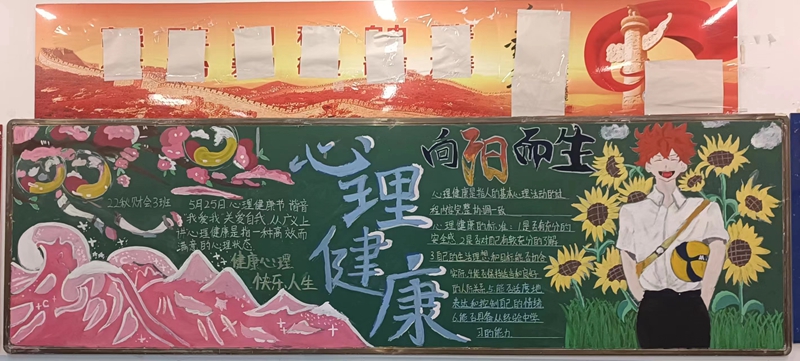 22秋财会3班
5月25日心理健康节 谐音
"我爱我"关爱自我,从广义上
讲心理健康是指一种高效而
满意的心理状态
健康心理
快乐人生
心理健康
向阳而生
心理健康是指人的基本心理活动的过
程内容完整协调一致
心理健康的标准:1.是否有充分的
安全感 2.是否对自己有较充分的了解
3.自己的生活理想和目标能否切合
实际 4.能否保持适当和良好
的人际关系 5.能否适度地
表达和控制自己的情绪
6.能否具备从经验中学
习的能力